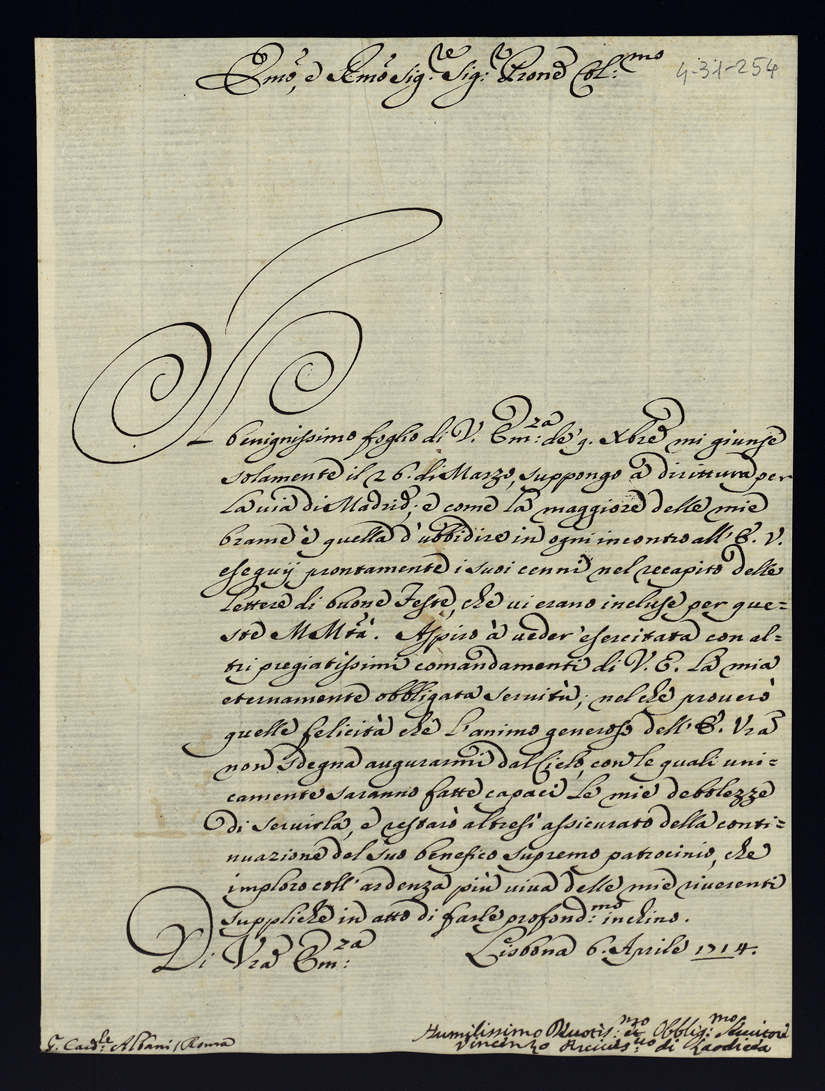 Emo, e Rmo Sig.re Sig.r Prone Col:mo
4-31-254
Il benignissimo foglio di V. Em:za de' 9. Xbre mi giunse
solamente il 26. di Marzo, suppongo à dirittura per
la via di Madrid; e come la maggiore delle mie
brame è quella d'ubbidire in ogni incontro all' E. V.
eseguij prontamente i suoi cenni nel recapito delle
lettere di buone Feste, che vi erano incluse per que=
ste MMtà. Aspiro à veder' esercitata con al=
tri pregiatissimi comandamenti di V. E. la mia
eternamente obbligata servitù; nel che proverò
quelle felicità che l'animo generoso dell' E. Vra
non sdegna augurarmi dal Cielo, con le quali uni=
camente saranno fatte capaci le mie debolezze
di servirla, e restarò altresì assicurato della conti=
nuazione del suo benefico supremo patrocinio, che
imploro coll' ardenza più viva delle mie riverenti
suppliche in atto di farle profond:mo inchino.
Di Vra Em:za Lisbona 6. Aprile 1714.
Humilissimo Devotis:mo et Obblig:mo Servitore
Vincenzo Arcives:vo di Laodicea
Sr. Card:le Albani / Roma